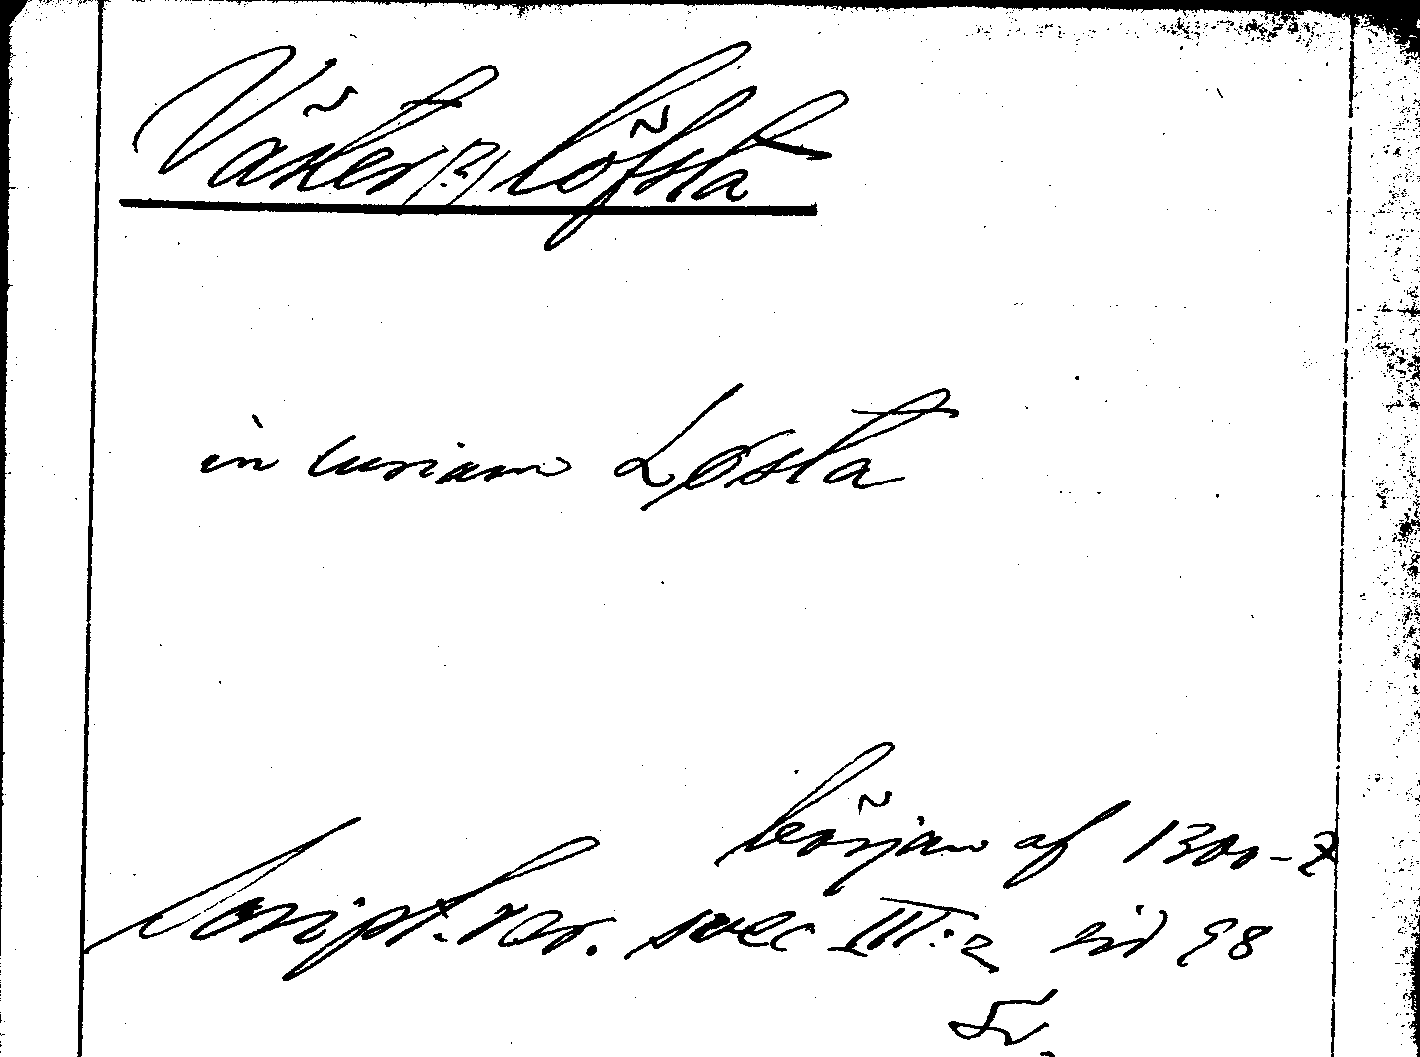 Väster(?) Löfsta
in curiam Løsta
början af 1300-t
Script. rer. svec III:2 sid 98
Sv.